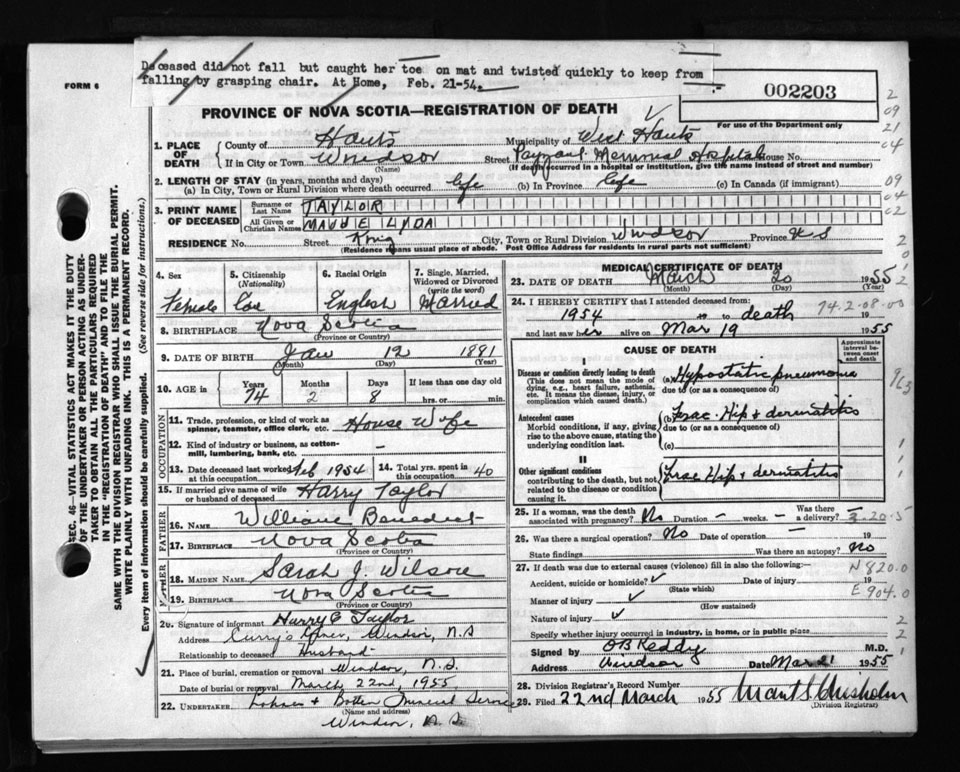 Deceased did not fall but caught her toe on mat and twisted quickly to keep from
falling by grasping chair. At Home, Feb. 21-54.
FORM 6
002203
For use of the Department only
PROVINCE OF NOVA SCOTIA—REGISTRATION OF DEATH
1. PLACE OF DEATH
County of Hants Municipality of West Hants
If in City or Town Windsor Street Payzant Memorial Hospital House No.
(Name) (If death occurred in a hospital or institution, give the name instead of street and number)
2. LENGTH OF STAY (in years, months and days)
(a) In City, Town or Rural Division where death occurred life (b) In Province life (c) In Canada (if immigrant)
3. PRINT NAME OF DECEASED
Surname or Last Name TAYLOR
All Given or Christian Names MAUDE LYDA
RESIDENCE No. Street King City, Town or Rural Division Windsor Province N S
(Residence means usual place of abode. Post Office Address for residents in rural parts not sufficient)
4. Sex Female
5. Citizenship (Nationality) Can
6. Racial Origin English
7. Single, Married, Widowed or Divorced (write the word) Married
8. BIRTHPLACE Nova Scotia
(Province or Country)
9. DATE OF BIRTH Jan 12 1881
(Month) (Day) (Year)
10. AGE in Years 74 Months 2 Days 8 If less than one day old hrs. or min.
OCCUPATION
11. Trade, profession, or kind of work as spinner, teamster, office clerk, etc. House Wife
12. Kind of industry or business, as cotton-mill, lumbering, bank, etc. –
13. Date deceased last worked at this occupation Feb 1954
14. Total yrs. spent in this occupation 40
15. If married give name of wife or husband of deceased Harry Taylor
FATHER
16. NAME William Benedict
17. BIRTHPLACE Nova Scotia
(Province or Country)
MOTHER
18. MAIDEN NAME Sarah J. Wilson
19. BIRTHPLACE Nova Scotia
(Province or Country)
20. Signature of informant Harry C Taylor
Address Curry's Corner, Windsor, N.S
Relationship to deceased Husband
21. Place of burial, cremation or removal Windsor, N.S.
Date of burial or removal March 22nd, 1955
22. UNDERTAKER Funeral Service
(Name and address)
Windsor, N.S
MEDICAL CERTIFICATE OF DEATH
23. DATE OF DEATH March 20 1955
(Month) (Day) (Year)
24. I HEREBY CERTIFY that I attended deceased from:
1954 19 to death 19
94-2-08-00
and last saw her alive on Mar 19 1955
CAUSE OF DEATH
Approximate interval between onset and death
I
Disease or condition directly leading to death
(This does not mean the mode of dying, e.g., heart failure, asthenia, etc. It means the disease, injury, or complication which caused death.)
(a) Hypostatic pneumonia
due to (or as a consequence of)
Antecedent causes
Morbid conditions, if any, giving rise to the above cause, stating the underlying condition last.
(b) Frac. Hip + dermatitis
due to (or as a consequence of)
(c)
II
Other significant conditions
contributing to the death, but not related to the disease or condition causing it.
Frac Hip + dermatitis
25. If a woman, was the death associated with pregnancy? No Duration – weeks. – Was there a delivery?
26. Was there a surgical operation? No Date of operation – 19
State findings Was there an autopsy? No
27. If death was due to external causes (violence) fill in also the following:—
N 820.0
Accident, suicide or homicide? Date of injury 19
(State which)
E 904.0
Manner of injury
(How sustained)
Nature of injury
Specify whether injury occurred in industry, in home, or in public place
Signed by O B Keddy M.D.
Address Windsor Date Mar 21 1955
28. Division Registrar's Record Number
29. Filed 22nd March 1955
(Division Registrar)
SEC. 46—VITAL STATISTICS ACT MAKES IT THE DUTY
OF THE UNDERTAKER OR PERSON ACTING AS UNDER-
TAKER TO OBTAIN ALL THE PARTICULARS REQUIRED
IN THE "REGISTRATION OF DEATH" AND TO FILE THE
SAME WITH THE DIVISION REGISTRAR WHO SHALL ISSUE THE BURIAL PERMIT.
WRITE PLAINLY WITH UNFADING INK. THIS IS A PERMANENT RECORD.
Every item of information should be carefully supplied. (See reverse side for instructions.)